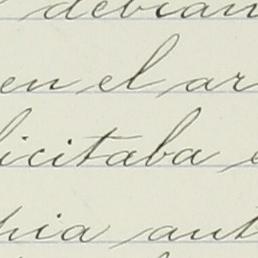 debian
en el ar
licitaba e
hia ant